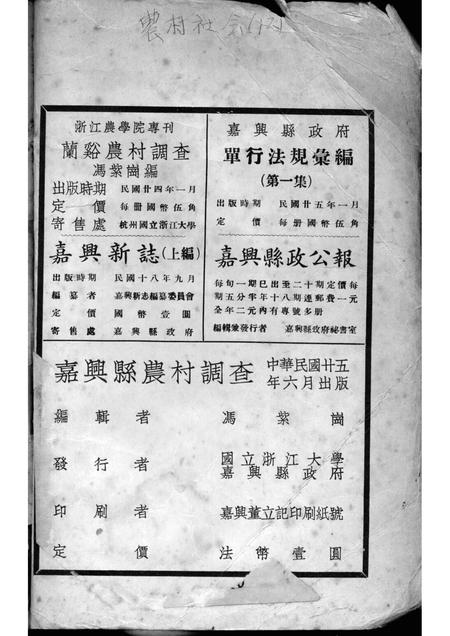 農村社会(12)
浙江農學院專刊
蘭谿農村調查
馮紫崗編
出版時期 民國廿四年一月
定價 每册國幣伍角
寄售處 杭州國立浙江大學
嘉興縣政府
單行法規彙編
(第一集)
出版時期 民國廿五年一月
定價 每册國幣伍角
嘉興新誌(上編)
出版時期 民國十八年九月
編纂者 嘉興新志編纂委員會
定價 國幣壹圓
寄售處 嘉興縣政府
嘉興縣政公報
每旬一期已出至二十期定價每
期五分半年十八期連郵費一元
全年二元內有專號多册
編輯兼發行者 嘉興縣政府祕書室
嘉興縣農村調查 中華民國廿五年六月出版
編輯者 馮紫崗
發行者 國立浙江大學
嘉興縣政府
印刷者 嘉興董立記印刷紙號
定價 法幣壹圓